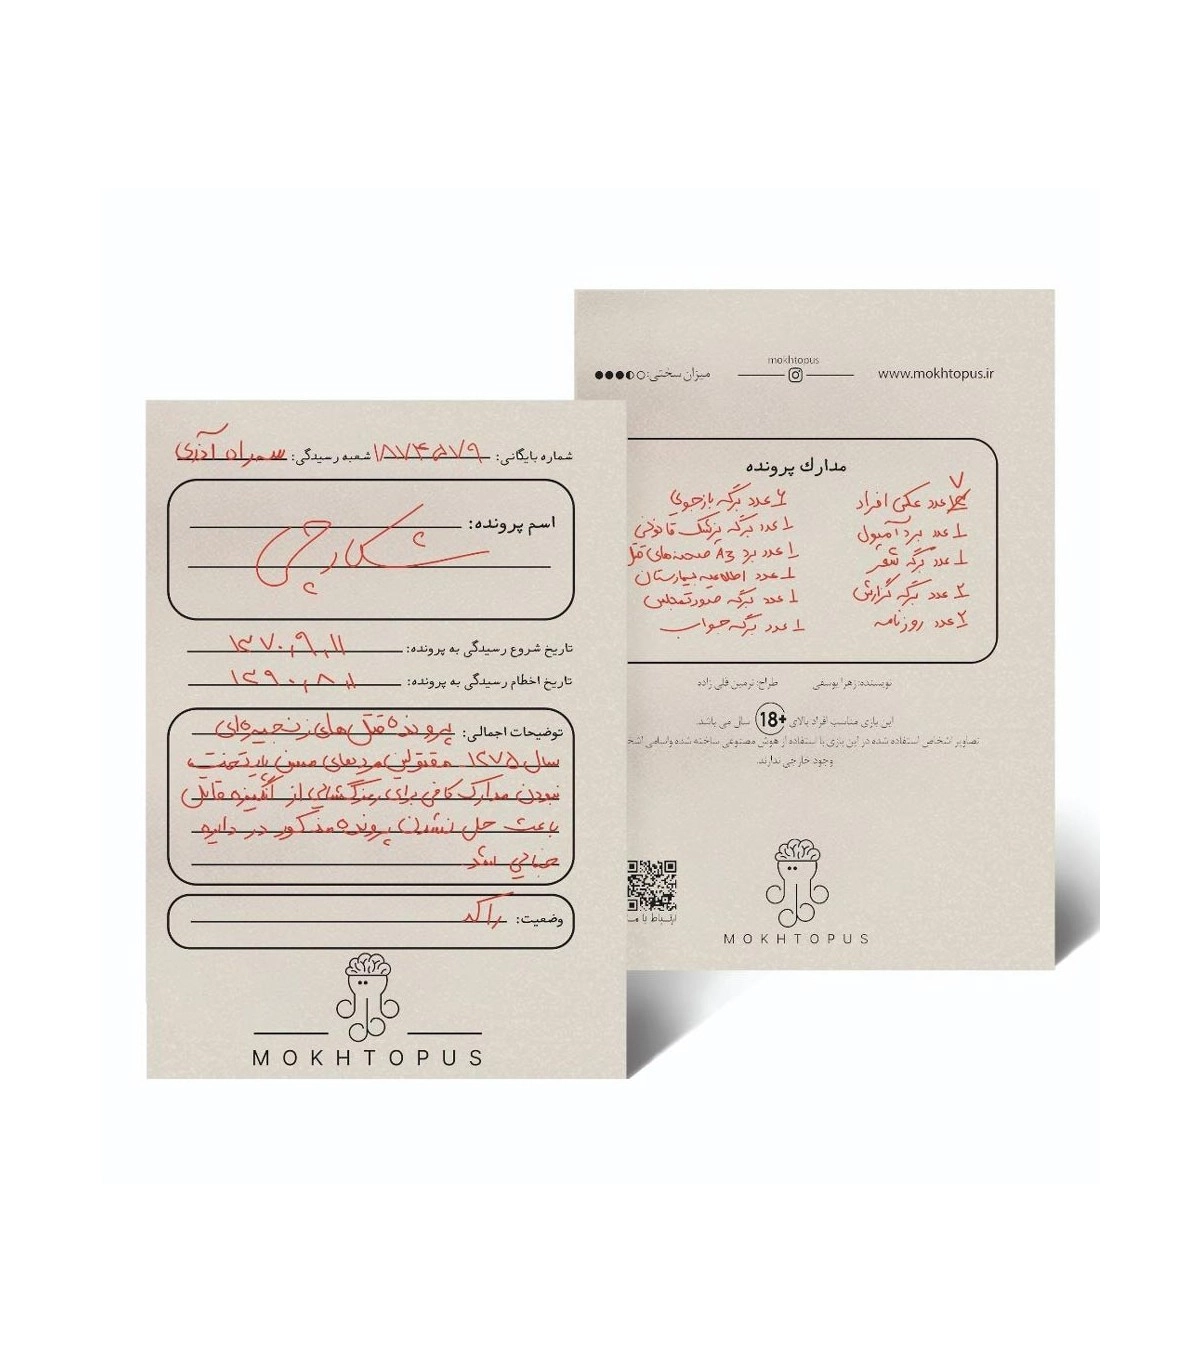 شماره بایگانی: ۱۸۷۴۵۷۹ شعبه رسیدگی: سهراه آذری
اسم پرونده:
شکارچی
تاریخ شروع رسیدگی به پرونده: ۱۳۷۰,۹,۱۱
تاریخ اخطام رسیدگی به پرونده: ۱۳۹۰,۸,۱
توضیحات اجمالی: پرونده قتل‌های زنجیره‌ای
سال ۱۲۷۵ مقتولین مردهای مسن پایتخت،
نبودن مدارک کافی برای رمزگشایی از انگیزه قاتل
باعث حل نشدن پرونده مذکور در دایره
جنایی شد
وضعیت: راکد
MOKHTOPUS
www.mokhtopus.ir
mokhtopus
میزان سختی:
مدارك پرونده
۷ عدد عکس افراد
۱ عدد برد آمپول
۱ عدد برگه شعر
۲ عدد برگه گزارش
۲ عدد روزنامه
۶ عدد برگه بازجویی
۱ عدد برگه پزشک قانونی
۱ عدد برد A3 صحنه‌های قتل
۱ عدد اطلاعیه بیمارستان
۱ عدد برگه صورتمجلس
۱ عدد برگه جواب
نویسنده: زهرا یوسفی طراح: نرمین قلی زاده
این بازی مناسب افراد بالای +18 سال می باشد.
تصاویر اشخاص استفاده شده در این بازی با استفاده از هوش مصنوعی ساخته شده واسامی
وجود خارجی ندارند.
ارتباط با
MOKHTOPUS